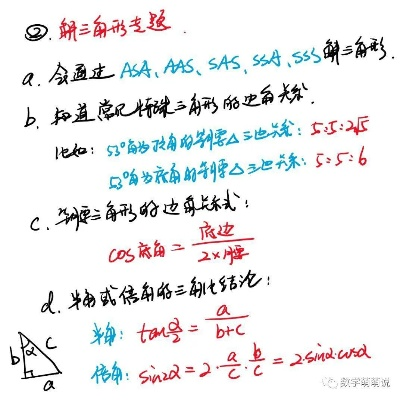 ②. 解三角形专题.
a. 会通过 ASA、AAS、SAS、SSA、SSS 解三角形.
b. 知道常见特殊三角形的边角关系.
比如: 53°角为顶角的等腰△三边关系: 5:5:2√5
53°角为底角的等腰△三边关系: 5:5:6
c. 等腰三角形的边角关系式:
cos底角 = 底边/(2×腰)
d. 半角或倍角的三角比结论:
半角: tan α/2 = a/(b+c)
倍角: sin2α = 2·a/c·b/c = 2·sinα·cosα
b α c a
数学萌萌说